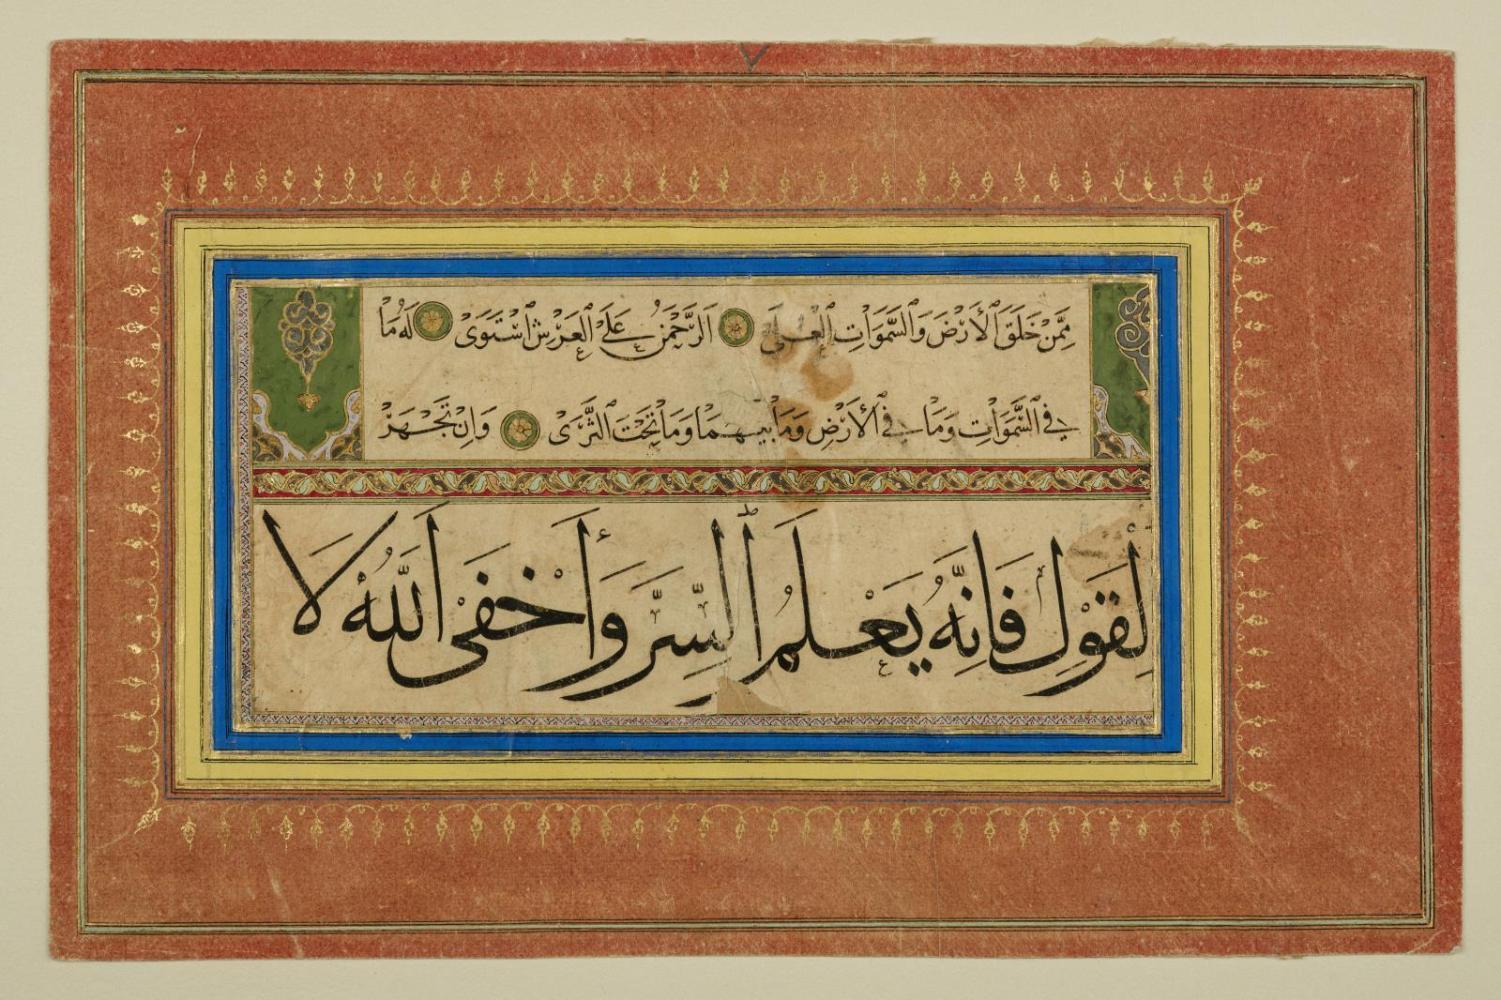 مِمَّنْ خَلَقَ ٱلْأَرْضَ وَالسَّمَوَاتِ ٱلْعُلَى الَرَّحْمَنُ عَلَى ٱلْعَرْشِ ٱسْتَوَىْ لَهُ مَا
فِي ٱلسَّمَوَاتِ وَمَا فِي ٱلْأَرْضِ وَمَا بَيْنَهُمَا وَمَا تَحْتَ ٱلثَّرَىْ وَاِنْ تَجْهَرْ
لْقَوْلِ فَاِنَّهُ يَعْلَمُ ٱلسِّرَّ وَأَخْفَى اَللهُ لَا